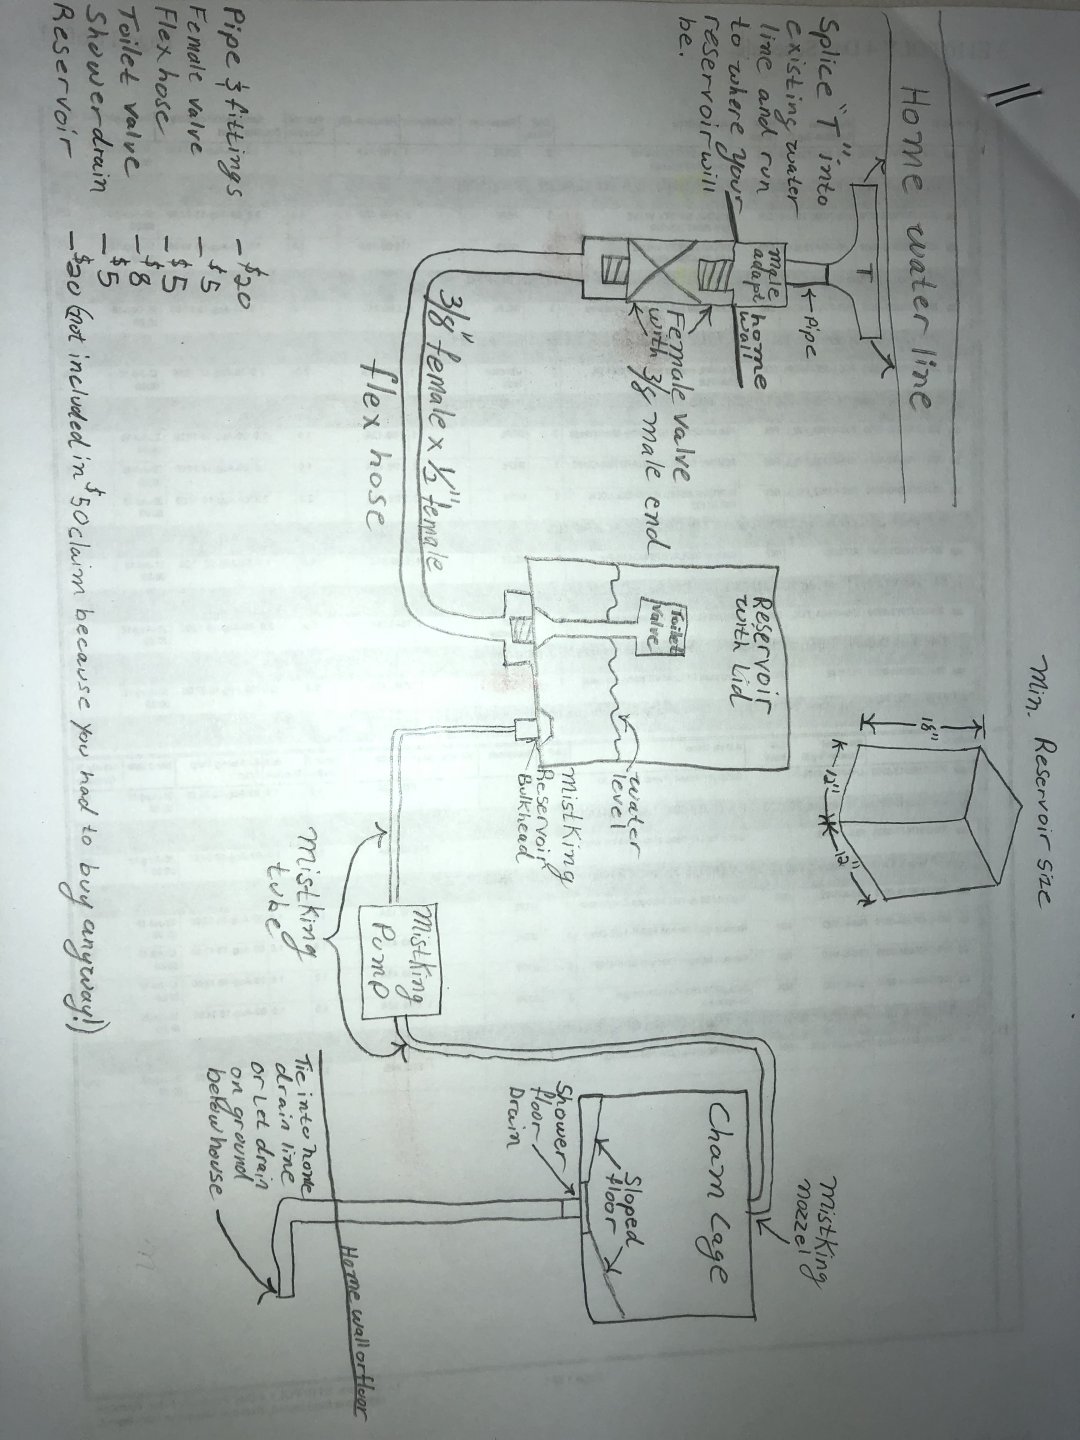 Home water line
T
Splice "T" into
existing water
line and run
to where your
reservoir will
be.
Pipe
male
adapt
home
wall
Female valve
with 3/8 male end
3/8" female x 1/2" female
flex hose
Min. Reservoir size
18"
12"
12"
Reservoir
with Lid
Toilet
Valve
water
level
Mistking
Reservoir
Bulkhead
Mistking
Pump
Mistking
tube
Mistking
nozzel
Cham Cage
Sloped
floor
Shower
floor
Drain
Home wall or floor
Tie into home
drain line
or Let drain
on ground
below house
Pipe & fittings - $20
Female valve - $5
Flex hose - $5
Toilet valve - $8
Shower drain - $5
Reservoir - $20 (not included in $50 claim because you had to buy anyway!)